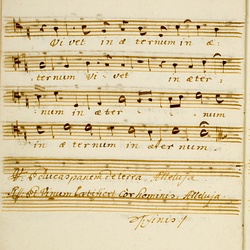 Vi vet in æ ternum in æ
ternum Vi vet in æ ter
num in æ ter num
in æ ternum in æter num
℣. Educas panem de terra Alleluja
℟. Et Vinum lætificet Cor hominis. Alleluja
Finis